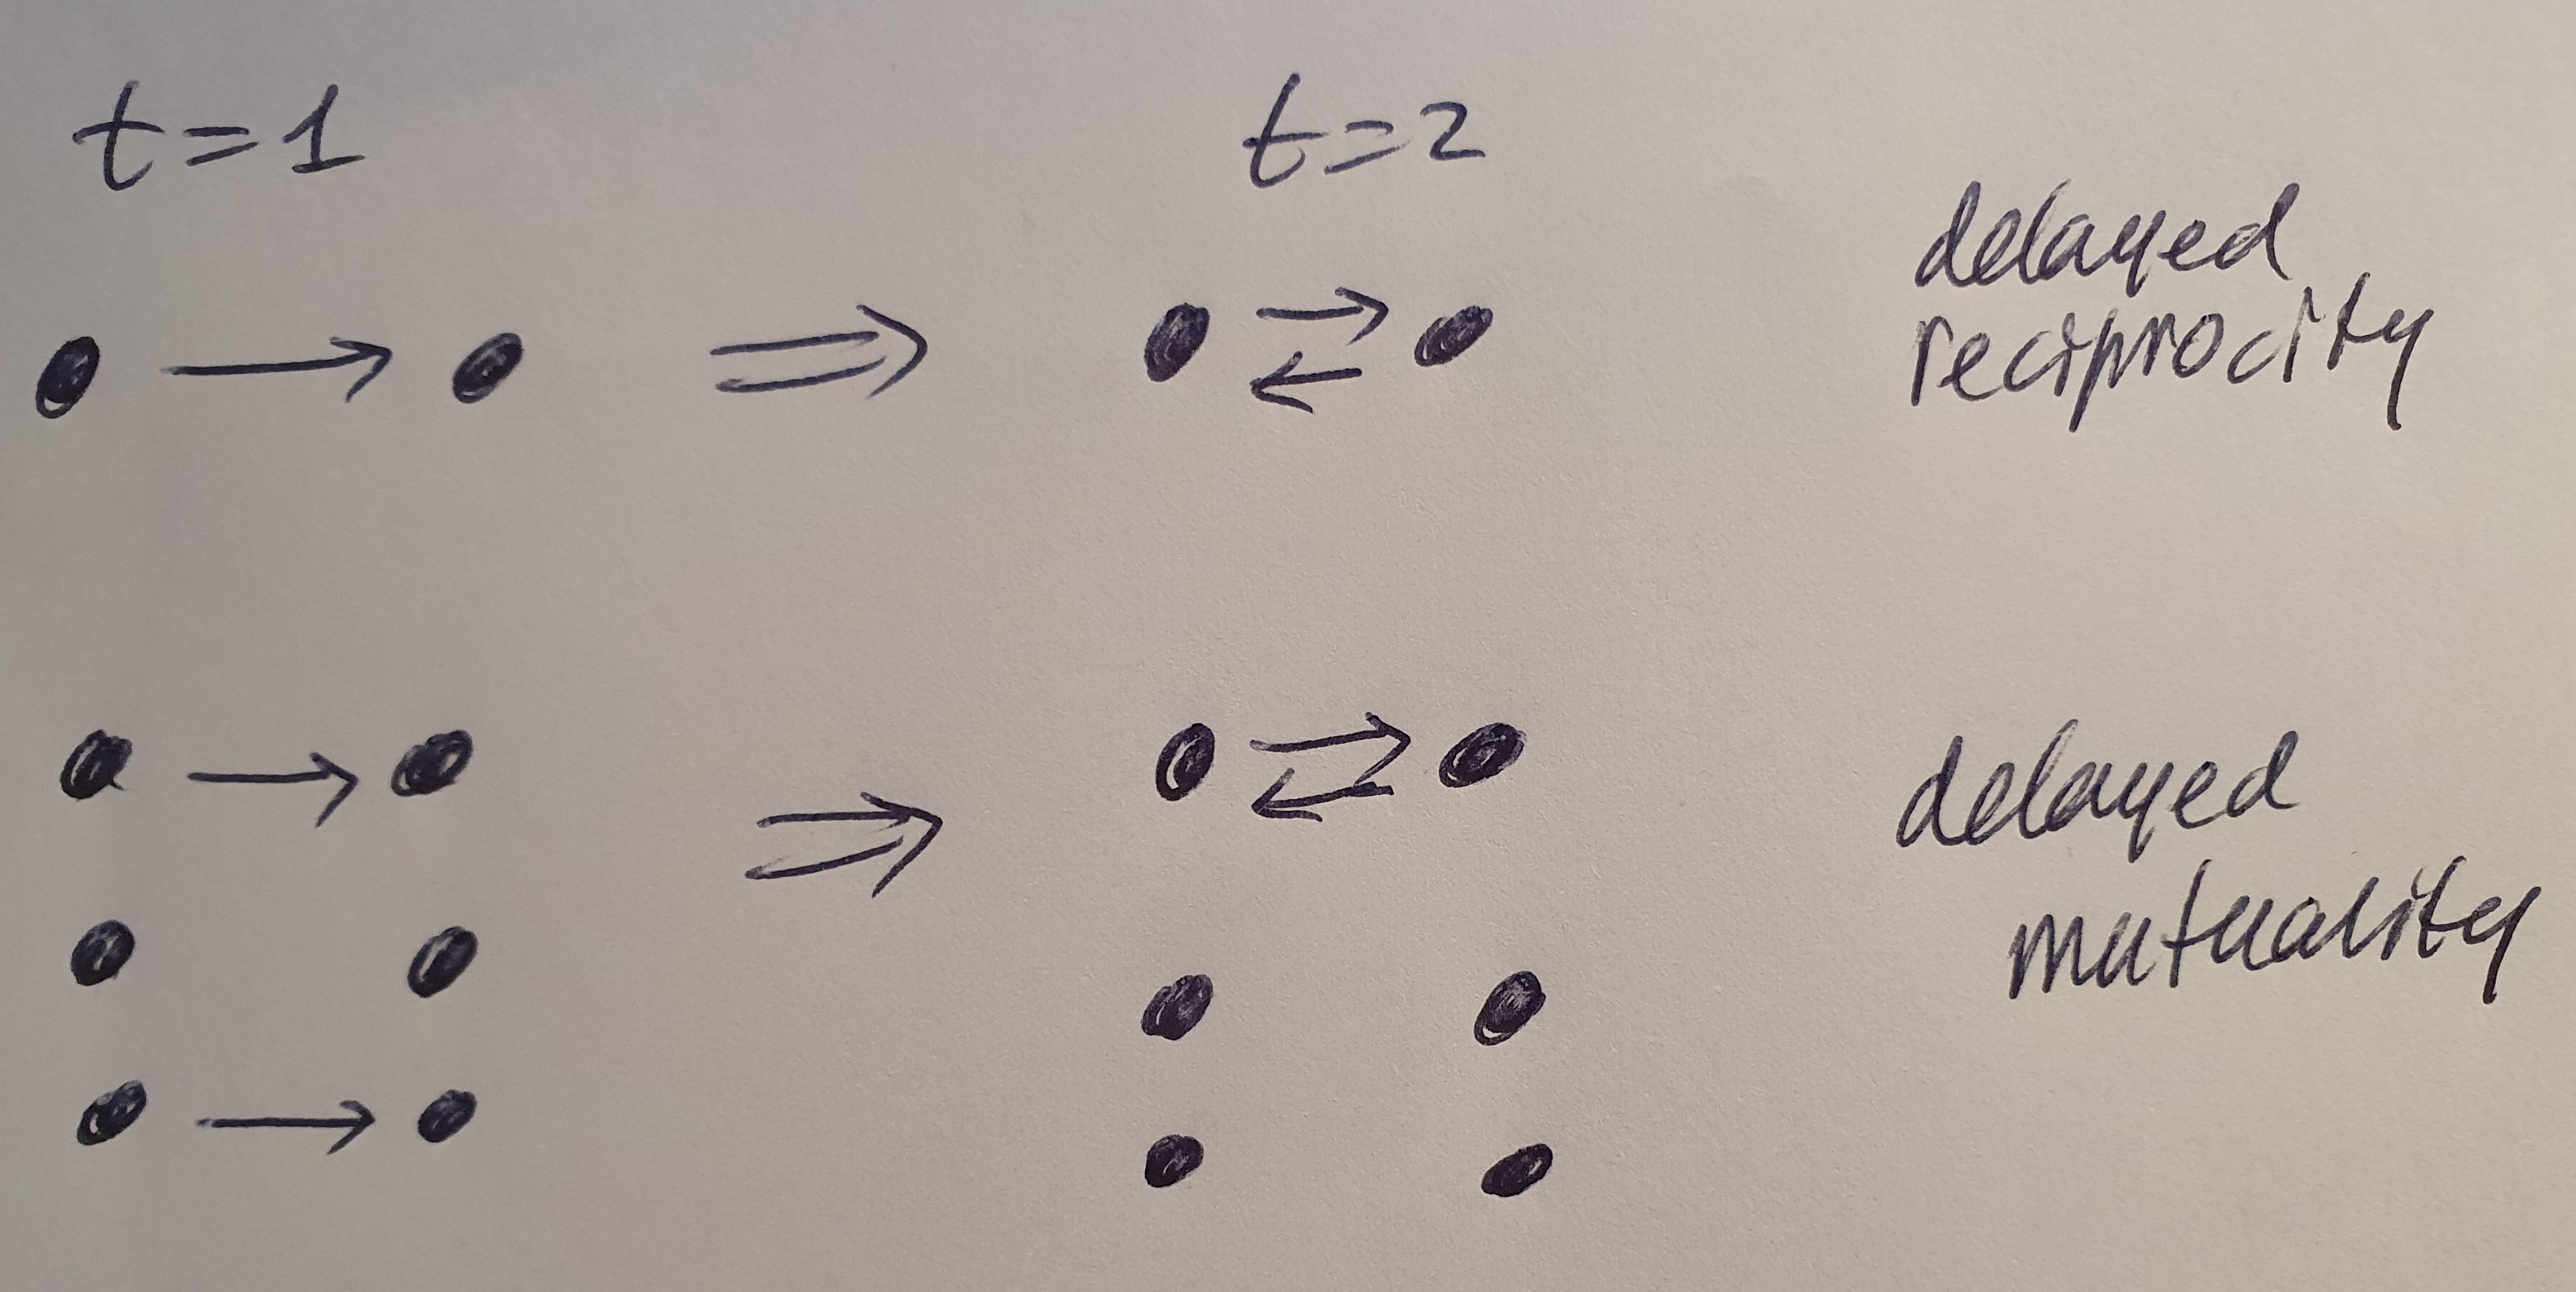 t=1
t=2
delayed
reciprocity
delayed
mutuality